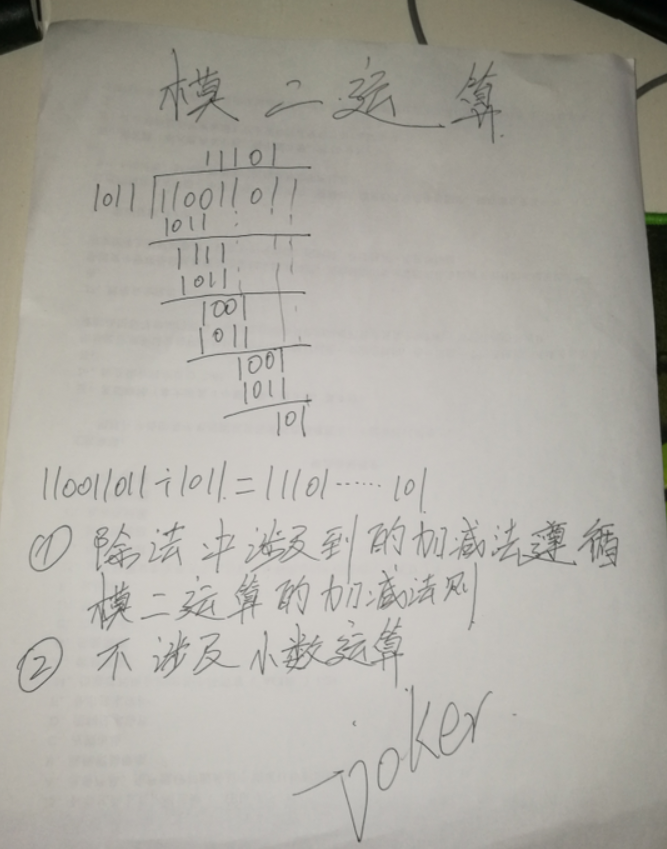 模二运算
11101
1011 11001011
1011
1111
1011
1001
1011
1001
1011
101
110011011÷1011=11101……101
① 除法中涉及到的加减法遵循
模二运算的加减法则
② 不涉及小数运算
joker.